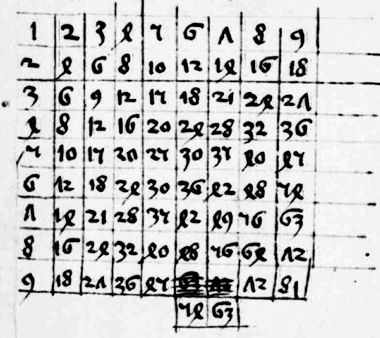 1 2 3 4 5 6 7 8 9
2 4 6 8 10 12 14 16 18
3 6 9 12 15 18 21 24 27
4 8 12 16 20 24 28 32 36
5 10 15 20 25 30 35 40 45
6 12 18 24 30 36 42 48 54
7 14 21 28 35 42 49 56 63
8 16 24 32 40 48 56 64 72
9 18 27 36 45 72 81
54 63